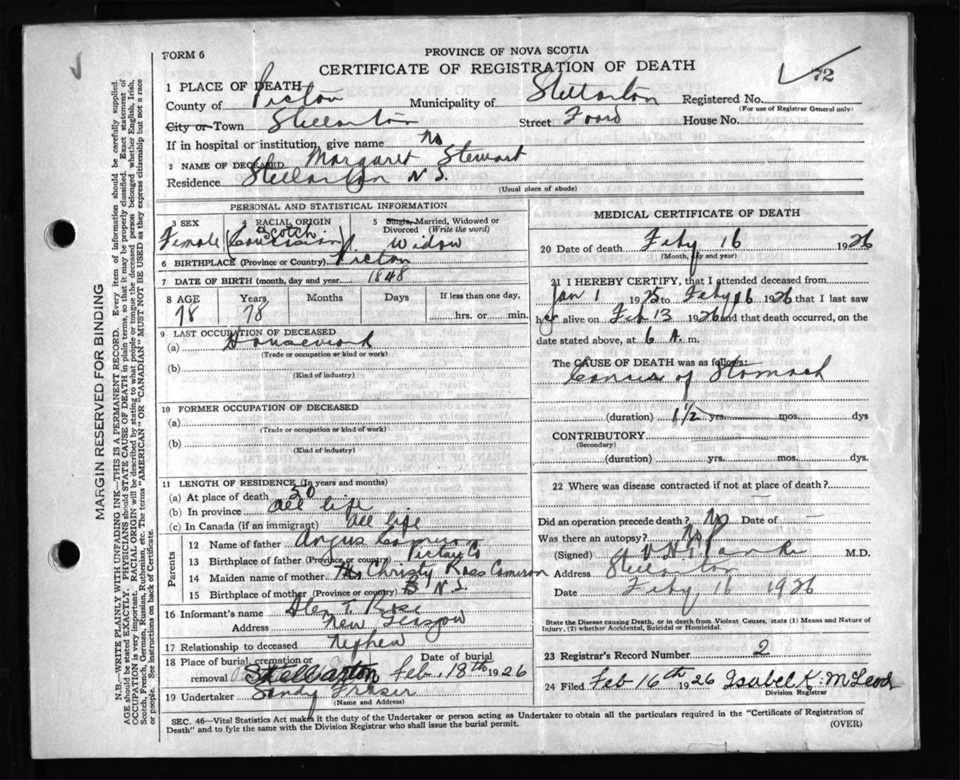 FORM 6
PROVINCE OF NOVA SCOTIA
CERTIFICATE OF REGISTRATION OF DEATH
72
1 PLACE OF DEATH
County of Pictou Municipality of Stellarton Registered No.
(For use of Registrar General only)
City or Town Stellarton Street Foord House No.
If in hospital or institution, give name No
2 NAME OF DECEASED Margaret Stewart
Residence Stellarton N S.
(Usual place of abode)
PERSONAL AND STATISTICAL INFORMATION
3 SEX Female
4 RACIAL ORIGIN Scotch
5 Single, Married, Widowed or Divorced (Write the word) Widow
6 BIRTHPLACE (Province or Country) Pictou
7 DATE OF BIRTH (month, day and year) 1848
8 AGE 78 Years 78 Months Days If less than one day, hrs. or min.
9 LAST OCCUPATION OF DECEASED
(a) Housework
(Trade or occupation or kind or work)
(b)
(Kind of industry)
10 FORMER OCCUPATION OF DECEASED
(a)
(Trade or occupation or kind of work)
(b)
(Kind of industry)
11 LENGTH OF RESIDENCE (In years and months)
(a) At place of death 50
(b) In province all life
(c) In Canada (if an immigrant) all life
Parents
12 Name of father Angus Cameron
13 Birthplace of father (Province or country) Pictou Co
14 Maiden name of mother Christy Ross Cameron
15 Birthplace of mother (Province or country) N.S.
16 Informant's name Alex T. Rose
Address New Glasgow
17 Relationship to deceased Nephew
18 Place of burial, cremation or removal Stellarton Date of burial Feb. 18th 1926
19 Undertaker Sandy Fraser
(Name and Address)
MEDICAL CERTIFICATE OF DEATH
20 Date of death Feby 16 1926
(Month, day and year)
21 I HEREBY CERTIFY, that I attended deceased from
Jan 1 1925 to Feby 16 1926 that I last saw
her alive on Feb 13 1926 and that death occurred, on
date stated above, at 6 A. m.
The CAUSE OF DEATH was as follows:
of Stomach
(duration) 1 1/2 yrs. mos. dys
CONTRIBUTORY
(Secondary)
(duration) yrs. mos. dys.
22 Where was disease contracted if not at place of death?
Did an operation precede death? No Date of
Was there an autopsy? No
(Signed) M.D.
Address Stellarton
Date Feby 16 1926
State the Disease causing Death, or in death from Violent Causes, state (1) Means and Nature of
Injury, (2) whether Accidental, Suicidal or Homicidal.
23 Registrar's Record Number 2
24 Filed Feb 16th 1926 Isabel K. McLeod
Division Registrar
SEC. 46—Vital Statistics Act makes it the duty of the Undertaker or person acting as Undertaker to obtain all the particulars required in the "Certificate of Registration of
Death" and to fyle the same with the Division Registrar who shall issue the burial permit.
(OVER)
MARGIN RESERVED FOR BINDING
N.B.—WRITE PLAINLY WITH UNFADING INK—THIS IS A PERMANENT RECORD. Every item of information should be carefully supplied.
AGE should be stated EXACTLY. PHYSICIANS should STATE CAUSE OF DEATH in plain terms, so that it may be properly classified. Exact statement of
OCCUPATION is very important. RACIAL ORIGIN will be described by stating to what people or tongue the deceased person belonged whether English, Irish,
Scotch, French, German, Russian, Ruthenian, etc. The terms "AMERICAN" OR "CANADIAN" MUST NOT BE USED as they express citizenship but not a race
or people. See instructions on back of Certificate.